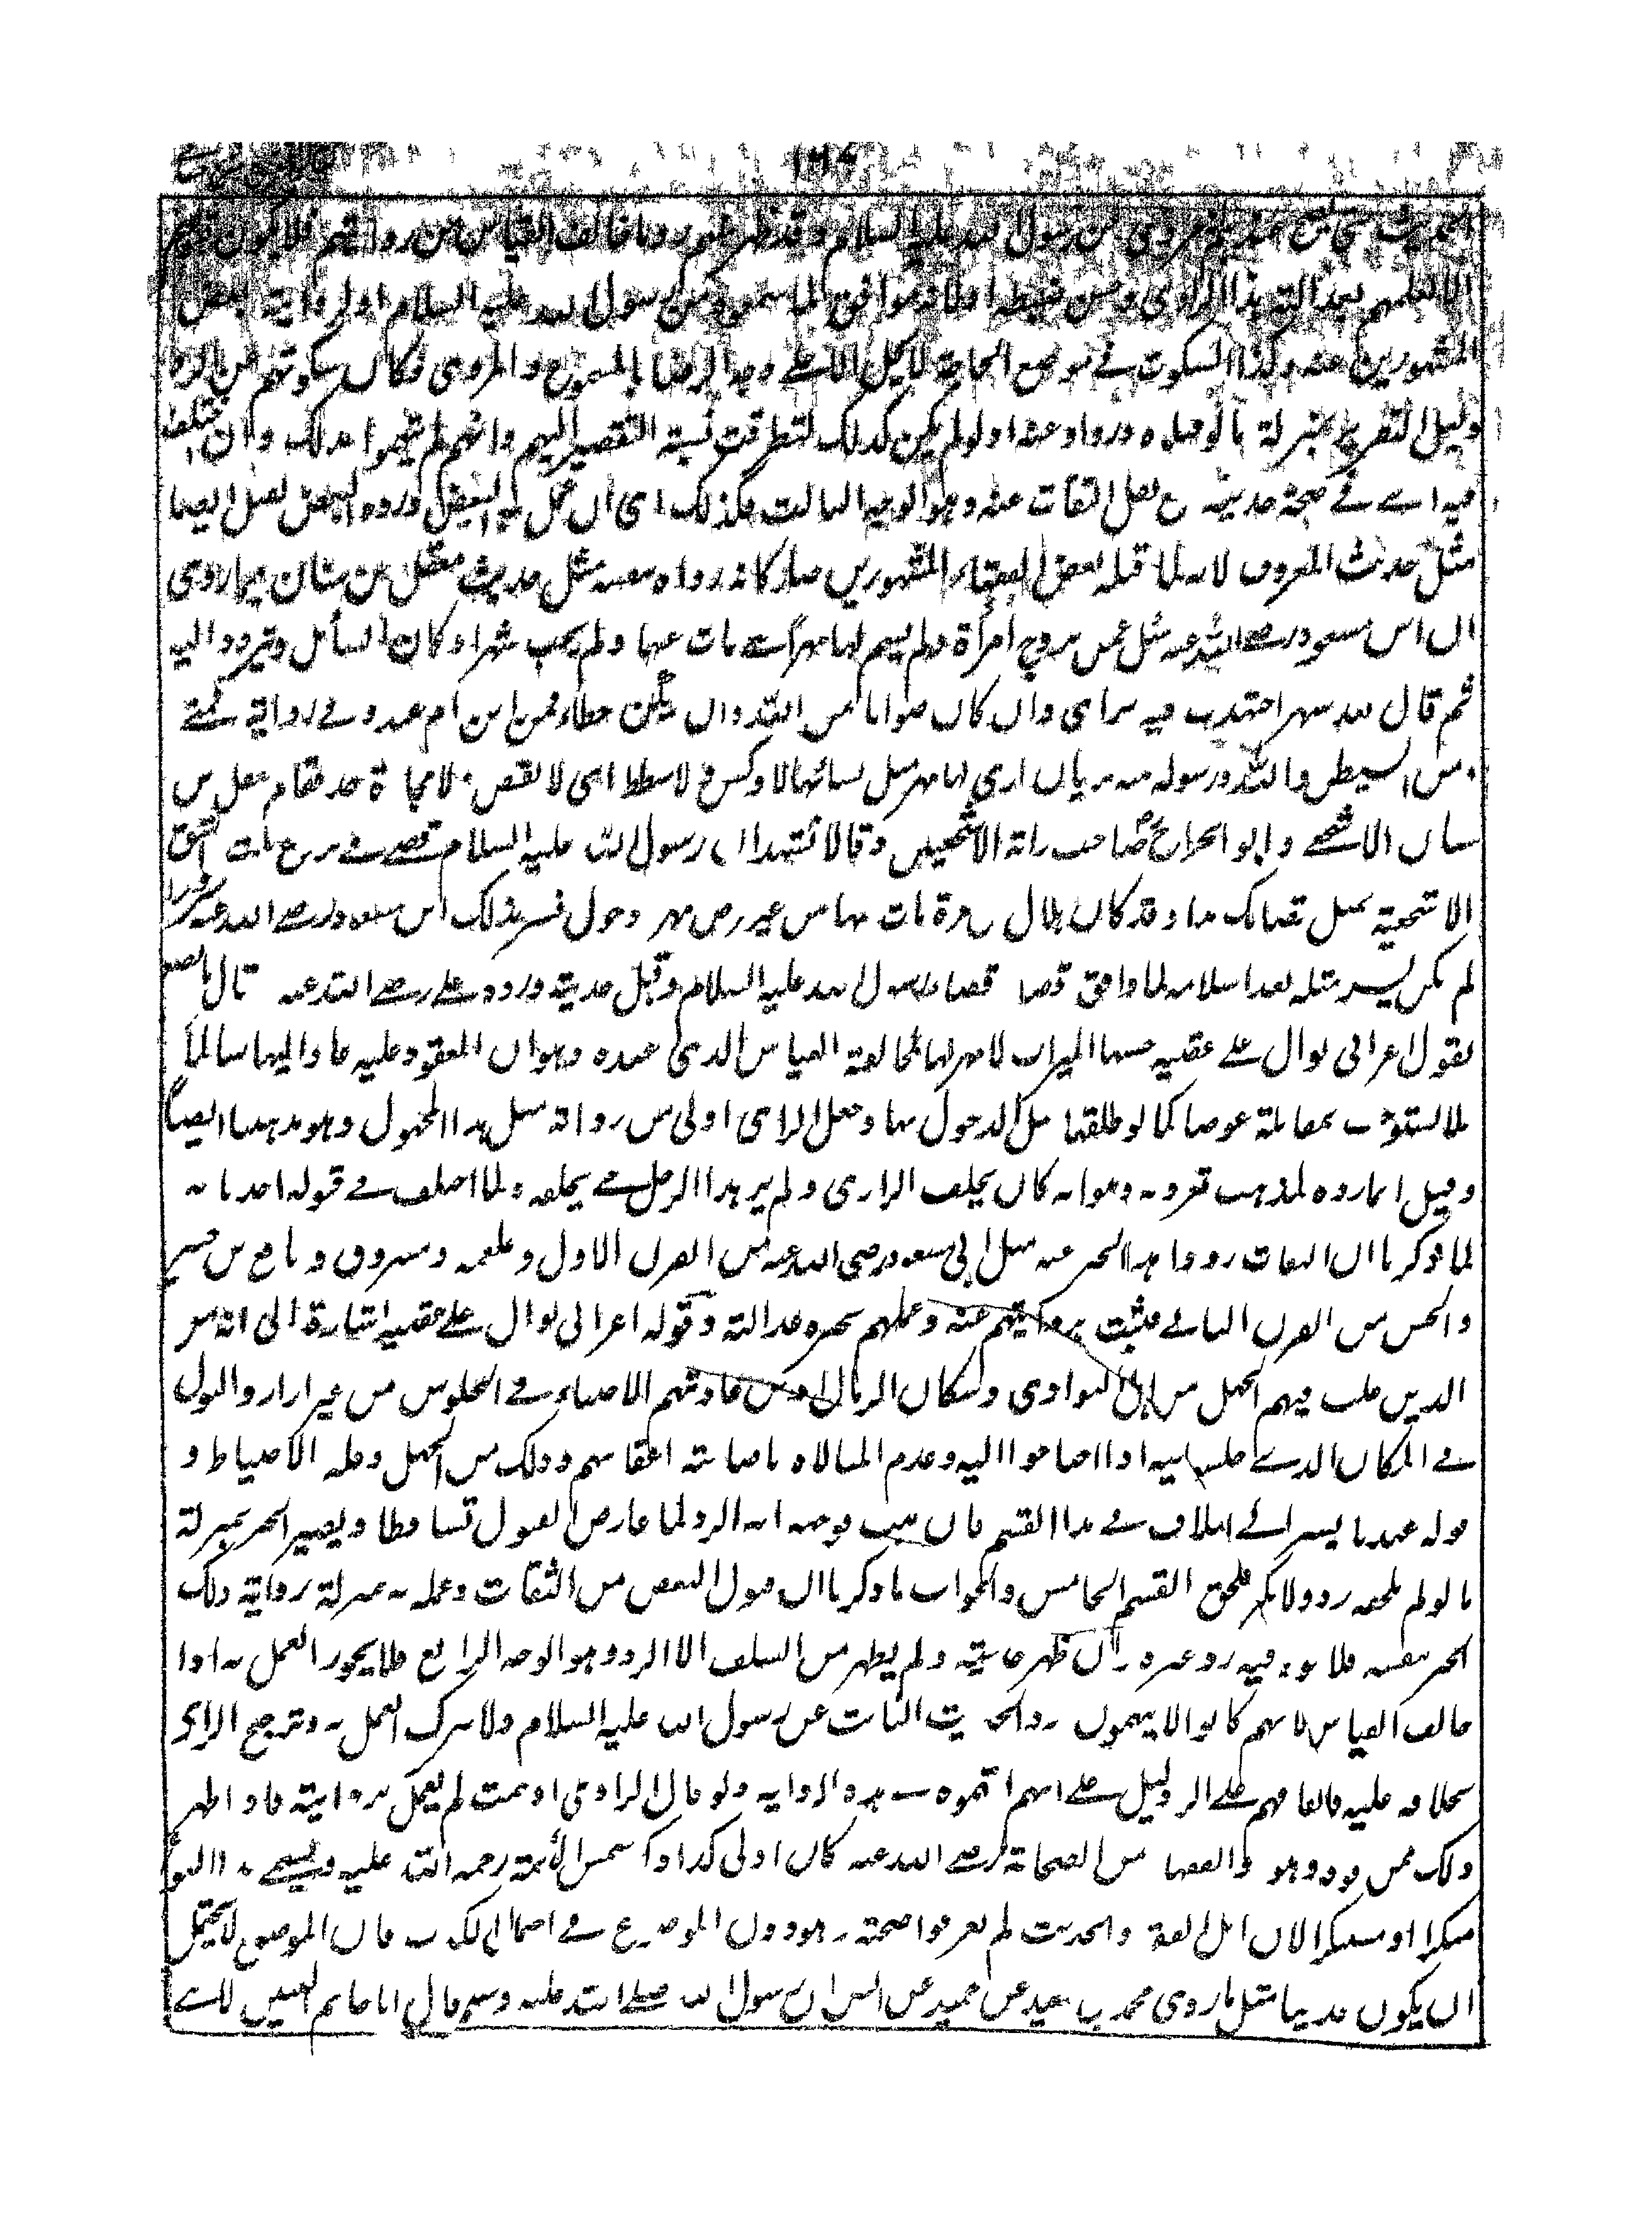 الحديث حتى عن رسول الله عليه السلام وقد ظهر منهم رد ما خالف القياس من روايتهم فلا يكون قبولهم
الا لعلمهم بعدالة هذا الراوى وحسن ضبطه او لانه موافق لما سمعوه من رسول الله عليه السلام او لرواية بعض
المشهورين عنه وكذا السكوت فى موضع الحاجة لا يحل الا على وجه الرضا بالمسموع و المروى فكان سكوتهم عن الرد
دليل التقرير بمنزلة ما لو قبلوه ورووا عنه اذ لو لم يكن كذلك لتطرقت نسبة التقصير اليهم وانهم لم يتهموا بذلك وان اختلف
فيه اے فى صحة حديثه مع نقل الثقات عنه وهو الوجه الثالث فكذلك اى ان قبل البعض ورده البعض يقبل ايضا
مثل حديث المعروف لانه لما قبله بعض الفقهاء المشهورين صار كانه رواه بنفسه مثل حديث معقل بن سنان فيما روى
ان ابن مسعود رضى الله عنه سئل عمن تزوج امرأة ولم يسم لها مهرا حتى مات عنها ولم يجب شهرا وكان السائل يتردد اليه
ثم قال بعد شهر اجتهدت فيه برأى وان كان صوابا فمن الله وان يكن خطاء فمن ابن ام عبد وفى رواية فمنى
ومن الشيطان والله ورسوله منه بريان ارى لها مهر مثل نسائها لا وكس ولا شطط اى لا نقص ولا مجاوزة حد فقام معقل بن
سنان الاشجعى وابو الجراح صاحب راية الاشجعيين وقالا نشهد ان رسول الله عليه السلام قضى فى بروع بنت واشق
الاشجعية بمثل قضائك هذا وقد كان هلال بن مرة مات عنها من غير فرض مهر و دخول فسر بذلك ابن مسعود رضى الله عنه سرورا
لم يكن يسر مثله بعد اسلامه لما وافق قضاؤه قضاء رسول الله عليه السلام وقبل حديثه ورده على رضى الله عنه قال ما نصنع
بقول اعرابى بوال على عقبيه حسبها الميراث لا مهر لها لمخالفة القياس الذى عنده وهو ان المعقود عليه عاد اليها سالما
فلا تستوجب بمقابلته عوضا كما لو طلقها قبل الدخول بها وجعل الراى اولى من رواية مثل هذا المجهول وهو مذهبنا ايضا
وقيل انما رده لمذهب تفرد به وهو انه كان يحلف الراوى ولم ير هذا الرجل حتى يحلفه ولما اختلف فى قبوله اخذنا به
لما ذكرنا ان الثقات رووا هذا الخبر عنه مثل ابن مسعود رضى الله عنه من القرن الاول وعلقمة ومسروق ونافع بن جبير
والحسن من القرن الثانى فثبت بروايتهم عنه وعملهم بخبره عدالته وقوله اعرابى بوال على عقبيه اشارة الى انه من
الذين غلب فيهم الجهل من اهل البوادى وسكان الرمال اذ من عادتهم الاحتباء فى الجلوس من غير ازار والبول
فى المكان الذى جلسوا فيه اذا احتاجوا اليه وعدم المبالاة باصابته اعقابهم وذلك من الجهل وقلة الاحتياط و
قوله عندنا يشير الى اختلاف فى هذا القسم فان قيل يوجه انه الرد لما عارض القبول تساقطا ويصير الخبر بمنزلة
ما لو لم يلحقه رد ولا نكير فيلحق القسم الخامس والجواب ما ذكرنا ان قبول البعض من الثقات وعمله به بمنزلة رواية ذلك
الخبر بنفسه فلا يؤثر فيه رد غيره وان ظهر حديثه ولم يظهر من السلف الا الرد وهو الوجه الرابع فلا يجوز العمل به اذا
خالف القياس لانهم كانوا لا يتهمون برد الحديث الثابت عن رسول الله عليه السلام ولا بترك العمل به وترجيح الراى
بخلافه عليه فاتفاقهم على الرد دليل على انهم اتهموه فى هذه الرواية ولو قال الراوى اوهمت لم يعمل بروايته فاذا ظهر
ذلك ممن فوقه وهو الفقهاء من الصحابة رضى الله عنهم كان اولى كذا ذكر شمس الائمة رحمه الله عليه ويسمى هذا النوع
منكرا او مستنكرا لان اهل الفقه والحديث لم يعرفوا صحته وهو دون الموضوع فى احتمال الكذب فان الموضوع لا يحتمل
ان يكون حديثا مثل ما روى محمد بن سعيد عن حميد عن انس ان رسول الله صلى الله عليه وسلم قال انا خاتم النبيين لا نبى